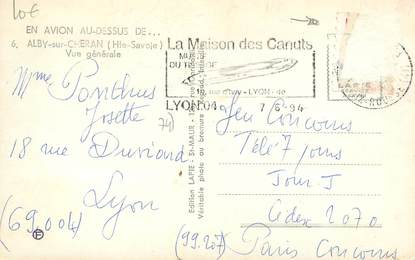 10€
EN AVION AU-DESSUS DE...
6. ALBY-sur-CHERAN (Hte-Savoie)
Vue générale
La Maison des Canuts
LYON-
LYON 04 7 / 6 - 94
Mme Ponthus
Josette
18 rue Duviard
Lyon
(69.004)
Edition LAPIE - St-MAUR
Véritable photo au bromure
Jeu Concours
Télé 7 jours
Jour J
Cedex 2070
(99.207) Paris Concours